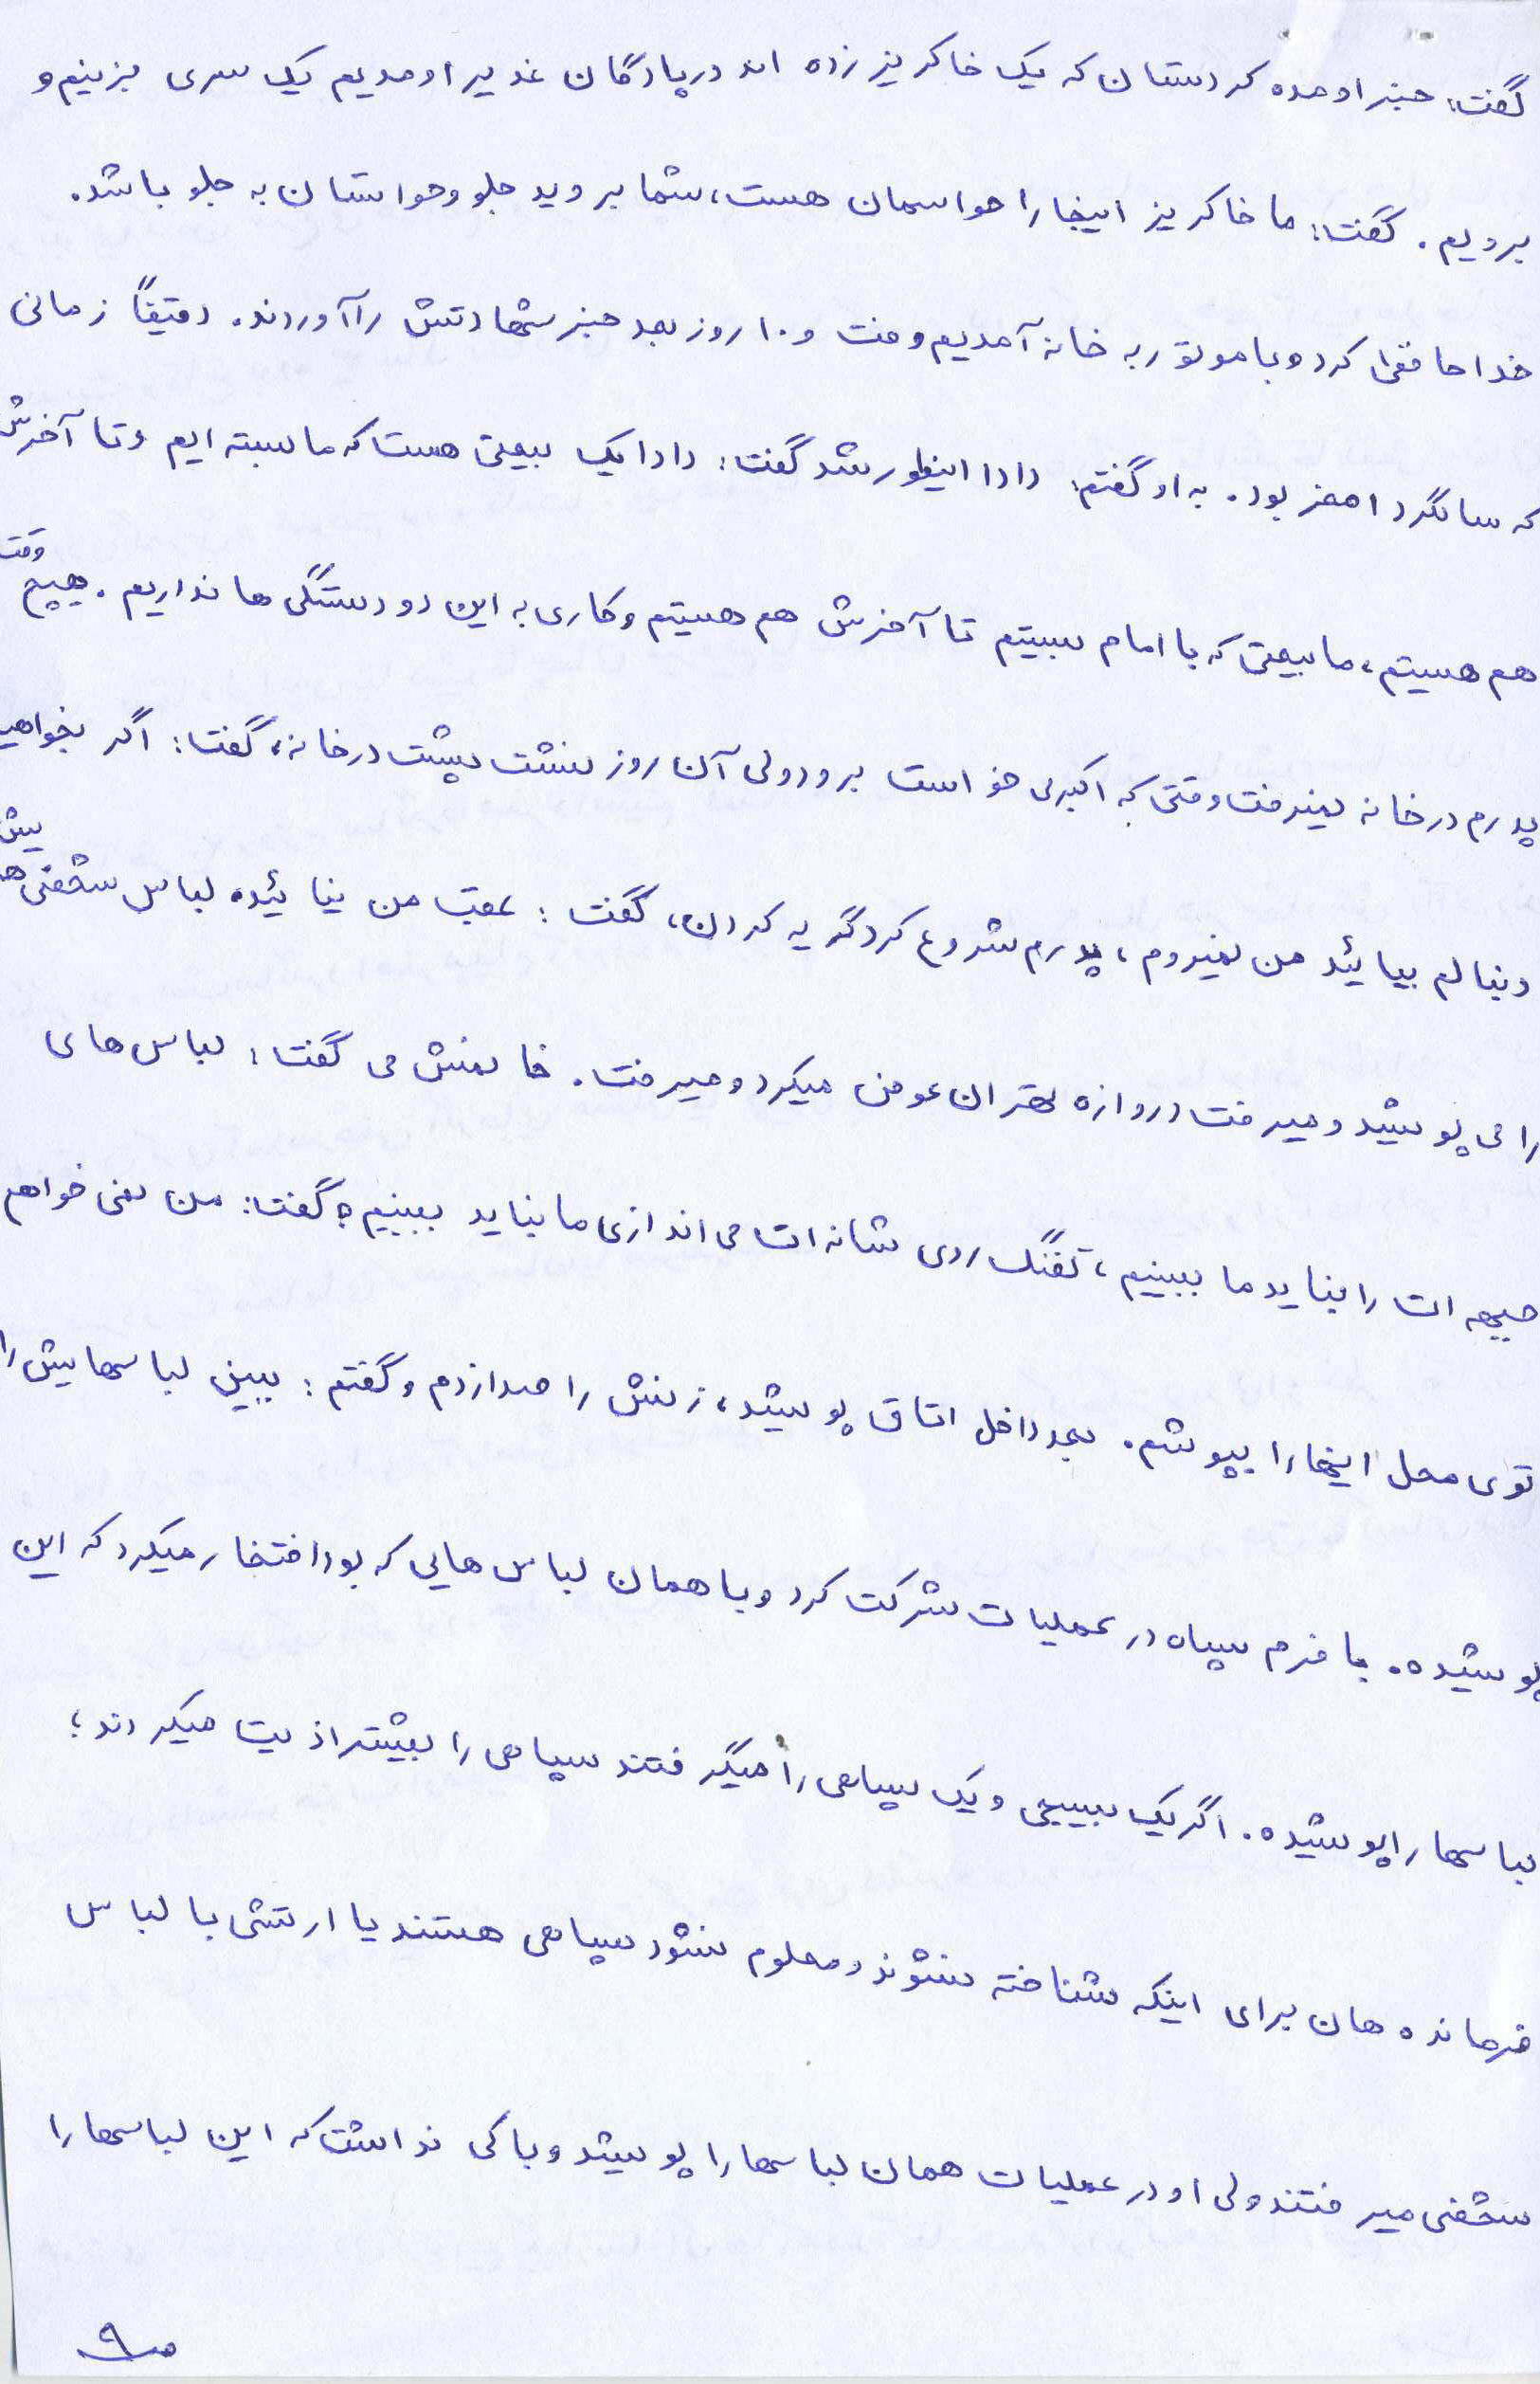 گفت: خبر اومده کردستان که یک خاکریز زده اند در پادگان غدیر اومدیم یک سری بزنیم و
برویم. گفت: ما خاکریز اینجا را حواسمان هست، شما بروید جلو وحواستان به جلو باشد.
خداحافظی کرد و با موتور به خانه آمدیم و رفت و ۱۰ روز بعد خبر شهادتش را آوردند. دقیقاً زمانی
که سالگرد اصغر بود. به او گفتم: دادا اینطور شد گفت: دادا یک بیعتی هست که ما بسته ایم و تا آخرش
هم هستیم، ما بیعتی که با امام بستیم تا آخرش هم هستیم و کاری به این دو دستگی ها نداریم. هیچ وقت
پدرم در خانه نمیرفت وقتی که اکبر می خواست برود ولی آن روز نشست پشت در خانه، گفت: اگر بخواهید
دنبالم بیائید من نمیروم، پدرم شروع کرد گریه کردن، گفت: عقب من نیائید. لباس شخصی هایش
را می پوشید و میرفت دروازه تهران عوض میکرد و میرفت. خانمش می گفت: لباس های
جبهه ات را نباید ما ببینیم، تفنگ روی شانه ات می اندازی ما نباید ببینیم؟ گفت: من نمی خواهم
توی محل اینها را بپوشم. بعد داخل اتاق پوشید، زنش را صدا زدم و گفتم: ببین لباسهایش را
پوشیده. با فرم سپاه در عملیات شرکت کرد و با همان لباس هایی که بود افتخار میکرد که این
لباسها را پوشیده. اگر یک بسیجی و یک سپاهی را میگرفتند سپاهی را بیشتر اذیت میکردند؛
فرمانده همان برای اینکه شناخته نشوند و معلوم نشود سپاهی هستند یا ارتشی با لباس
شخصی میرفتند ولی او در عملیات همان لباسها را پوشید و باکی نداشت که این لباسها را
ص۹